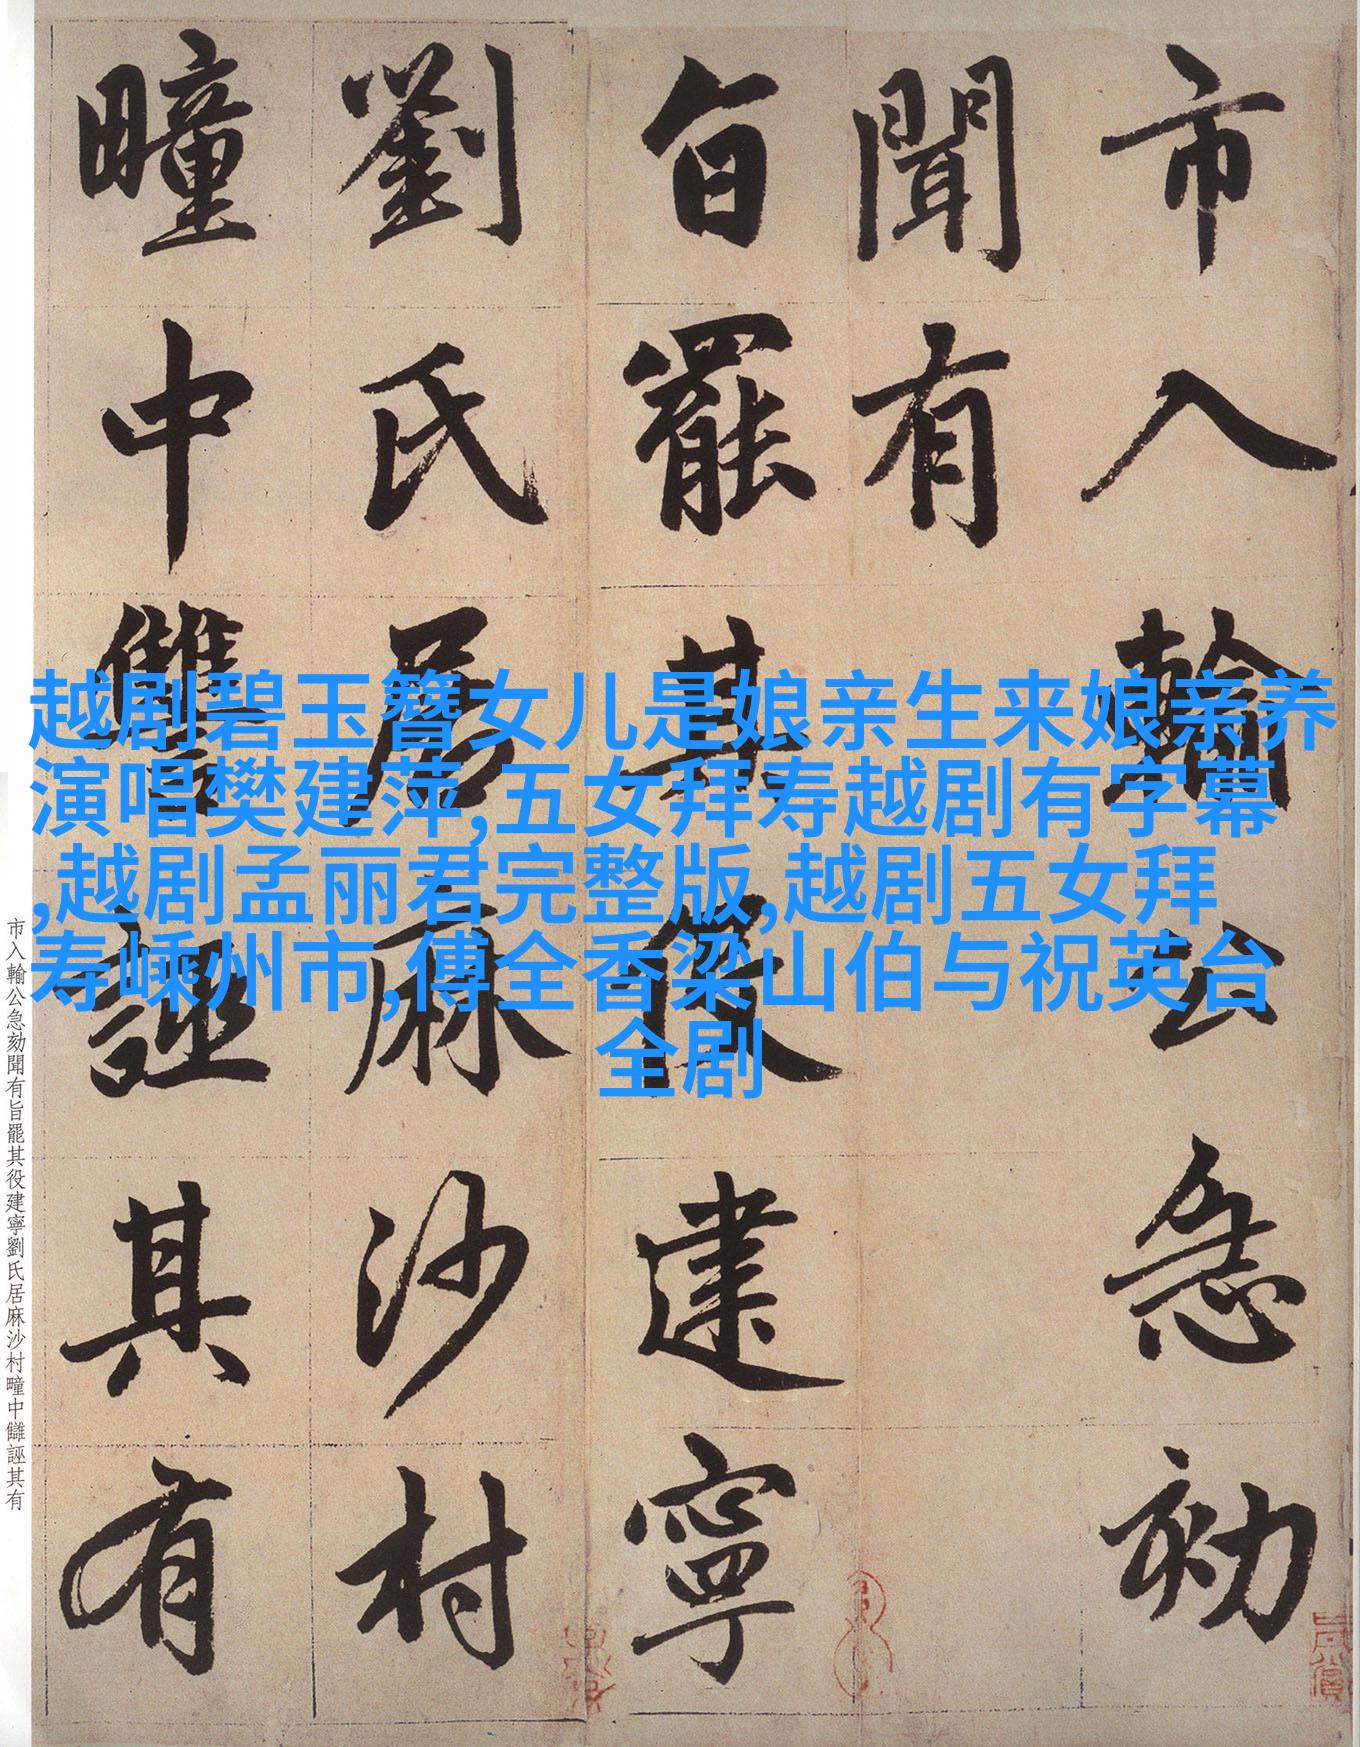 市入輸公急劾
聞有
旨罷其役建寧
劉氏居麻沙村
疃中讎誣其有
市入輸公急劾聞有旨罷其役建寧劉氏居麻沙村疃中讎誣其有
越剧碧玉簪女儿是娘亲生来娘亲养
演唱樊建萍,五女拜寿越剧有字幕
,越剧孟丽君完整版,越剧五女拜
寿嵊州市,傅全香梁山伯与祝英台
全剧